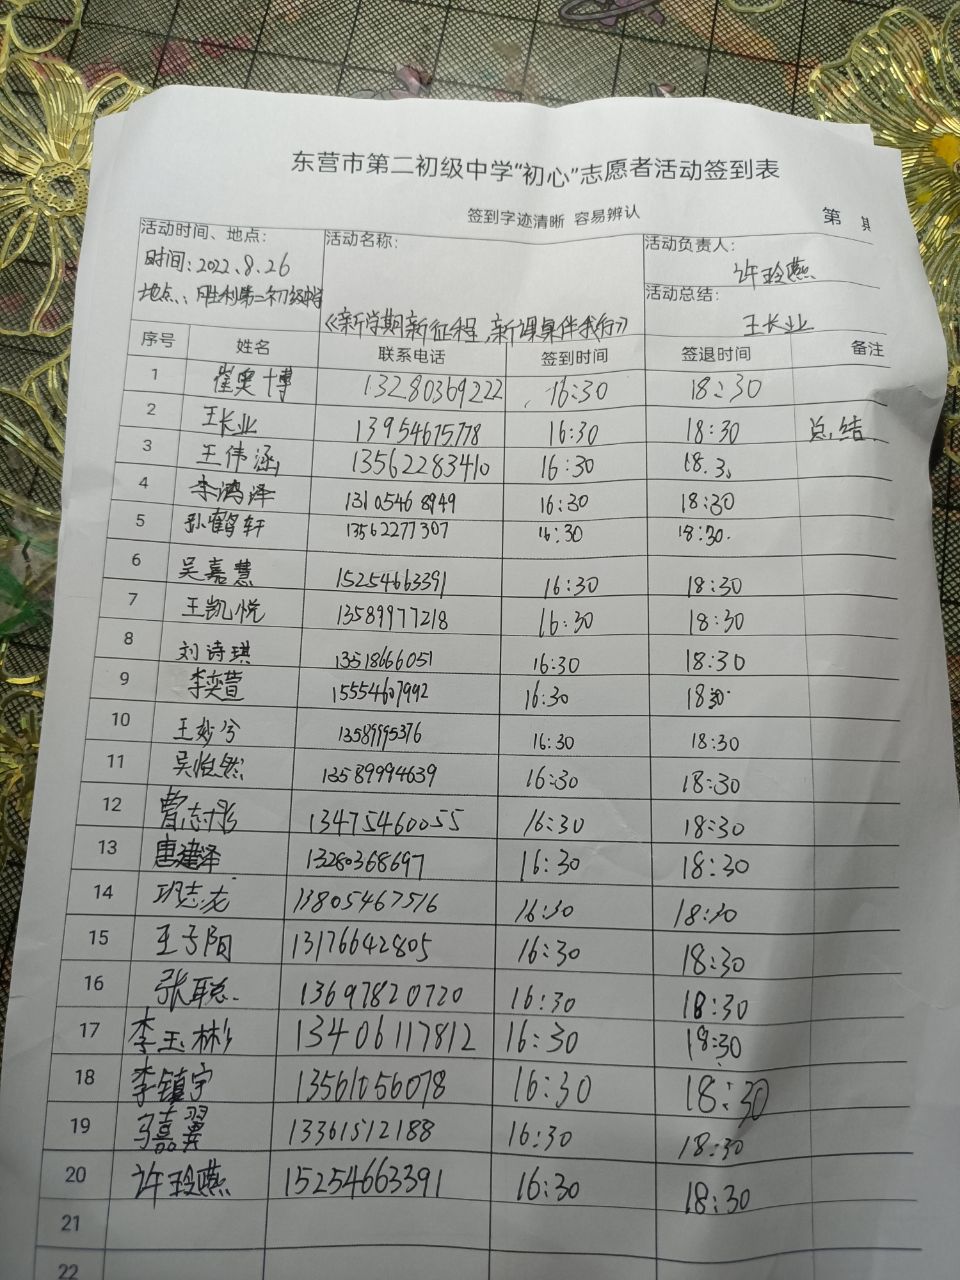 东营市第二初级中学“初心”志愿者活动签到表
签到字迹清晰 容易辨认
第
活动时间、地点:
时间:2022.8.26
地点:胜利第二初级中学
活动名称:
《新学期新征程,新课桌伴我行》
活动负责人:
许玲燕
活动总结:
王长业
序号 姓名 联系电话 签到时间 签退时间 备注
1 崔奥博 13280369222 16:30 18:30
2 王长业 13954675778 16:30 18:30 总结
3 王伟涵 13562283410 16:30 18.3
4 李鸿泽 13105468949 16:30 18:30
5 孙鹤轩 13562277307 16:30 18:30.
6 吴嘉慧 15254663391 16:30 18:30
7 王凯悦 13589977218 16:30 18:30
8 刘诗琪 13518666051 16:30 18:30
9 李奕萱 15554607992 16:30 18:30
10 王妙兮 13589995376 16:30 18:30
11 吴怡然 13589994639 16:30 18:30
12 曹志彬 13475460055 16:30 18:30
13 唐建泽 13280368697 16:30 18:30
14 志龙 13805467516 16:30 18:30
15 王子阳 13176642805 16:30 18:30
16 张聪 13697820720 16:30 18:30
17 李玉彬 13406117812 16:30 18:30
18 李镇宇 13561056078 16:30 18:30
19 马嘉翼 13361512188 16:30 18:30
20 许玲燕 15254663391 16:30 18:30
21
22